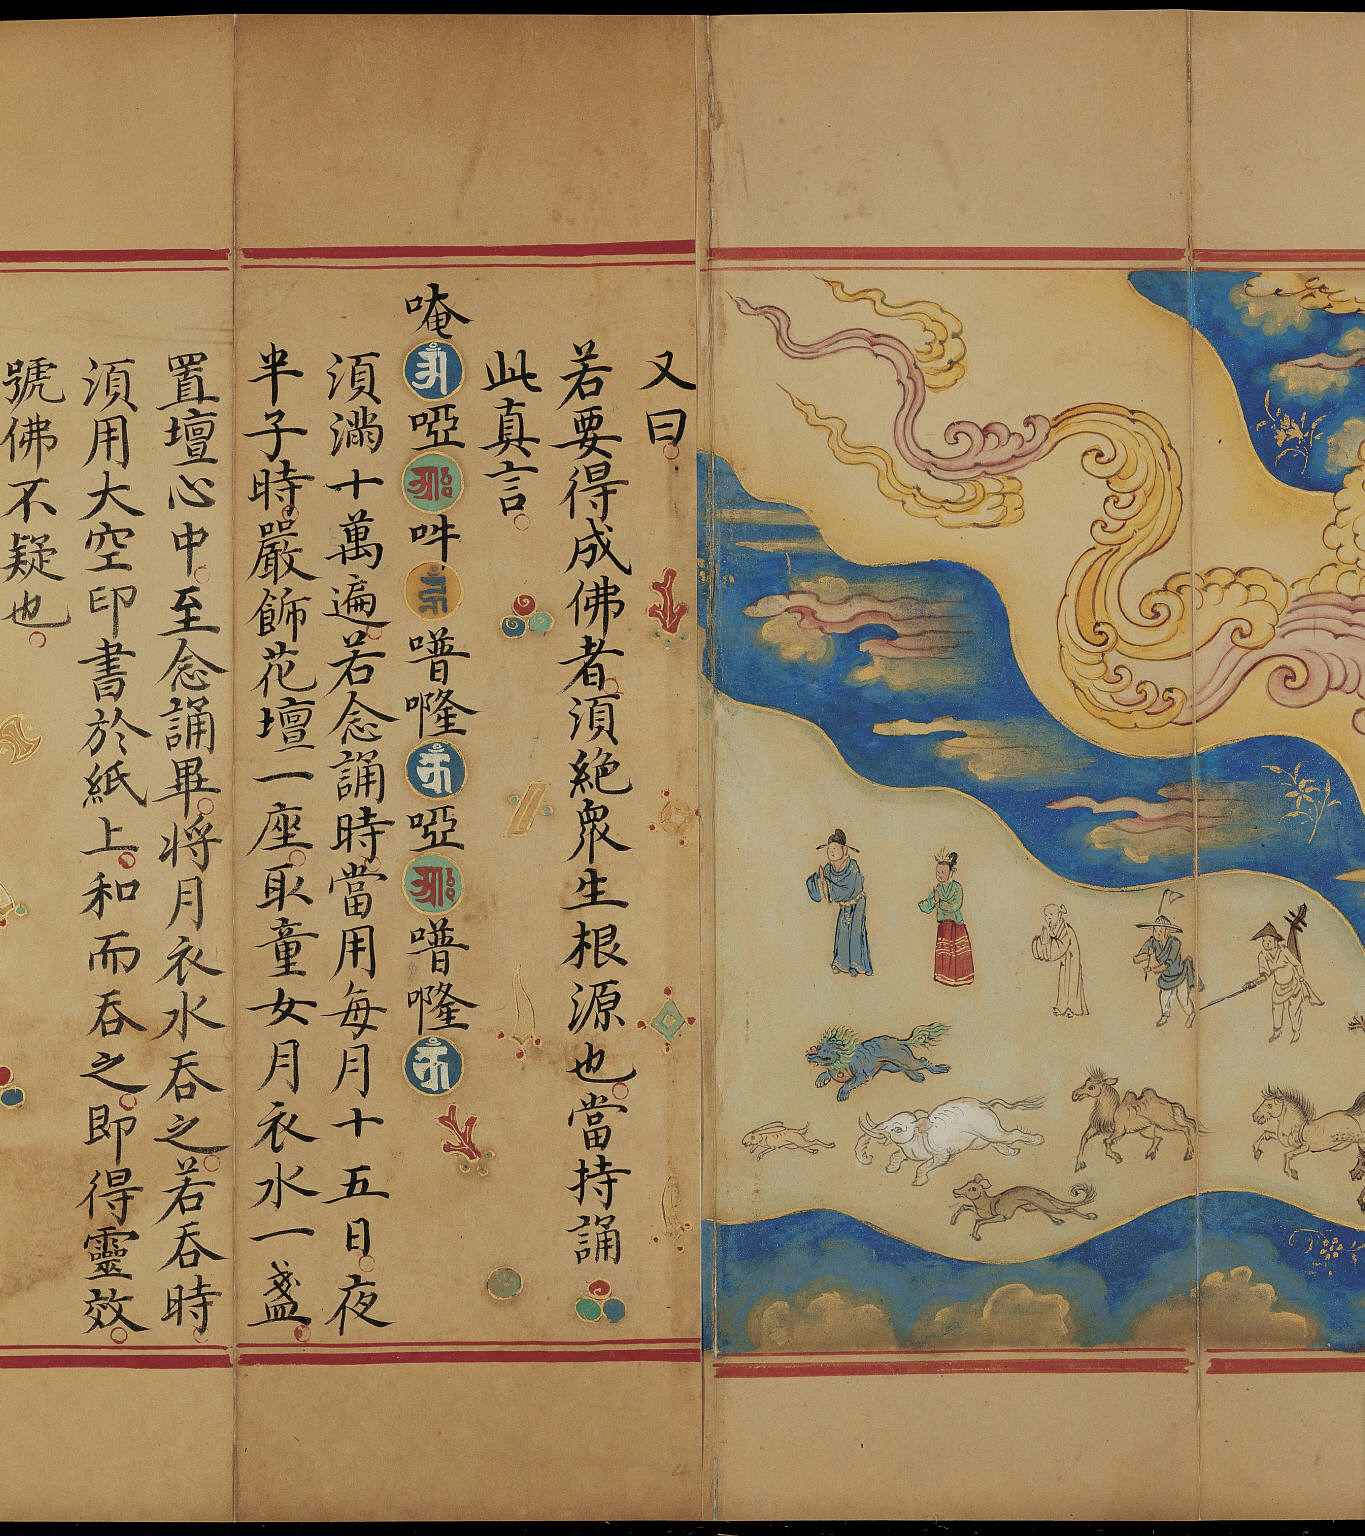 又曰
若要得成佛者湏絕衆生根源也當持誦
此真言
唵 啞 吽 啞
湏滿十萬遍若念誦時當用每月十五日夜
半子時嚴飾花壇一座取童女月衣水一盞
置壇心中至念誦畢將月衣水吞之若吞時
湏用大空印書於紙上和而吞之即得靈效
號佛不疑也